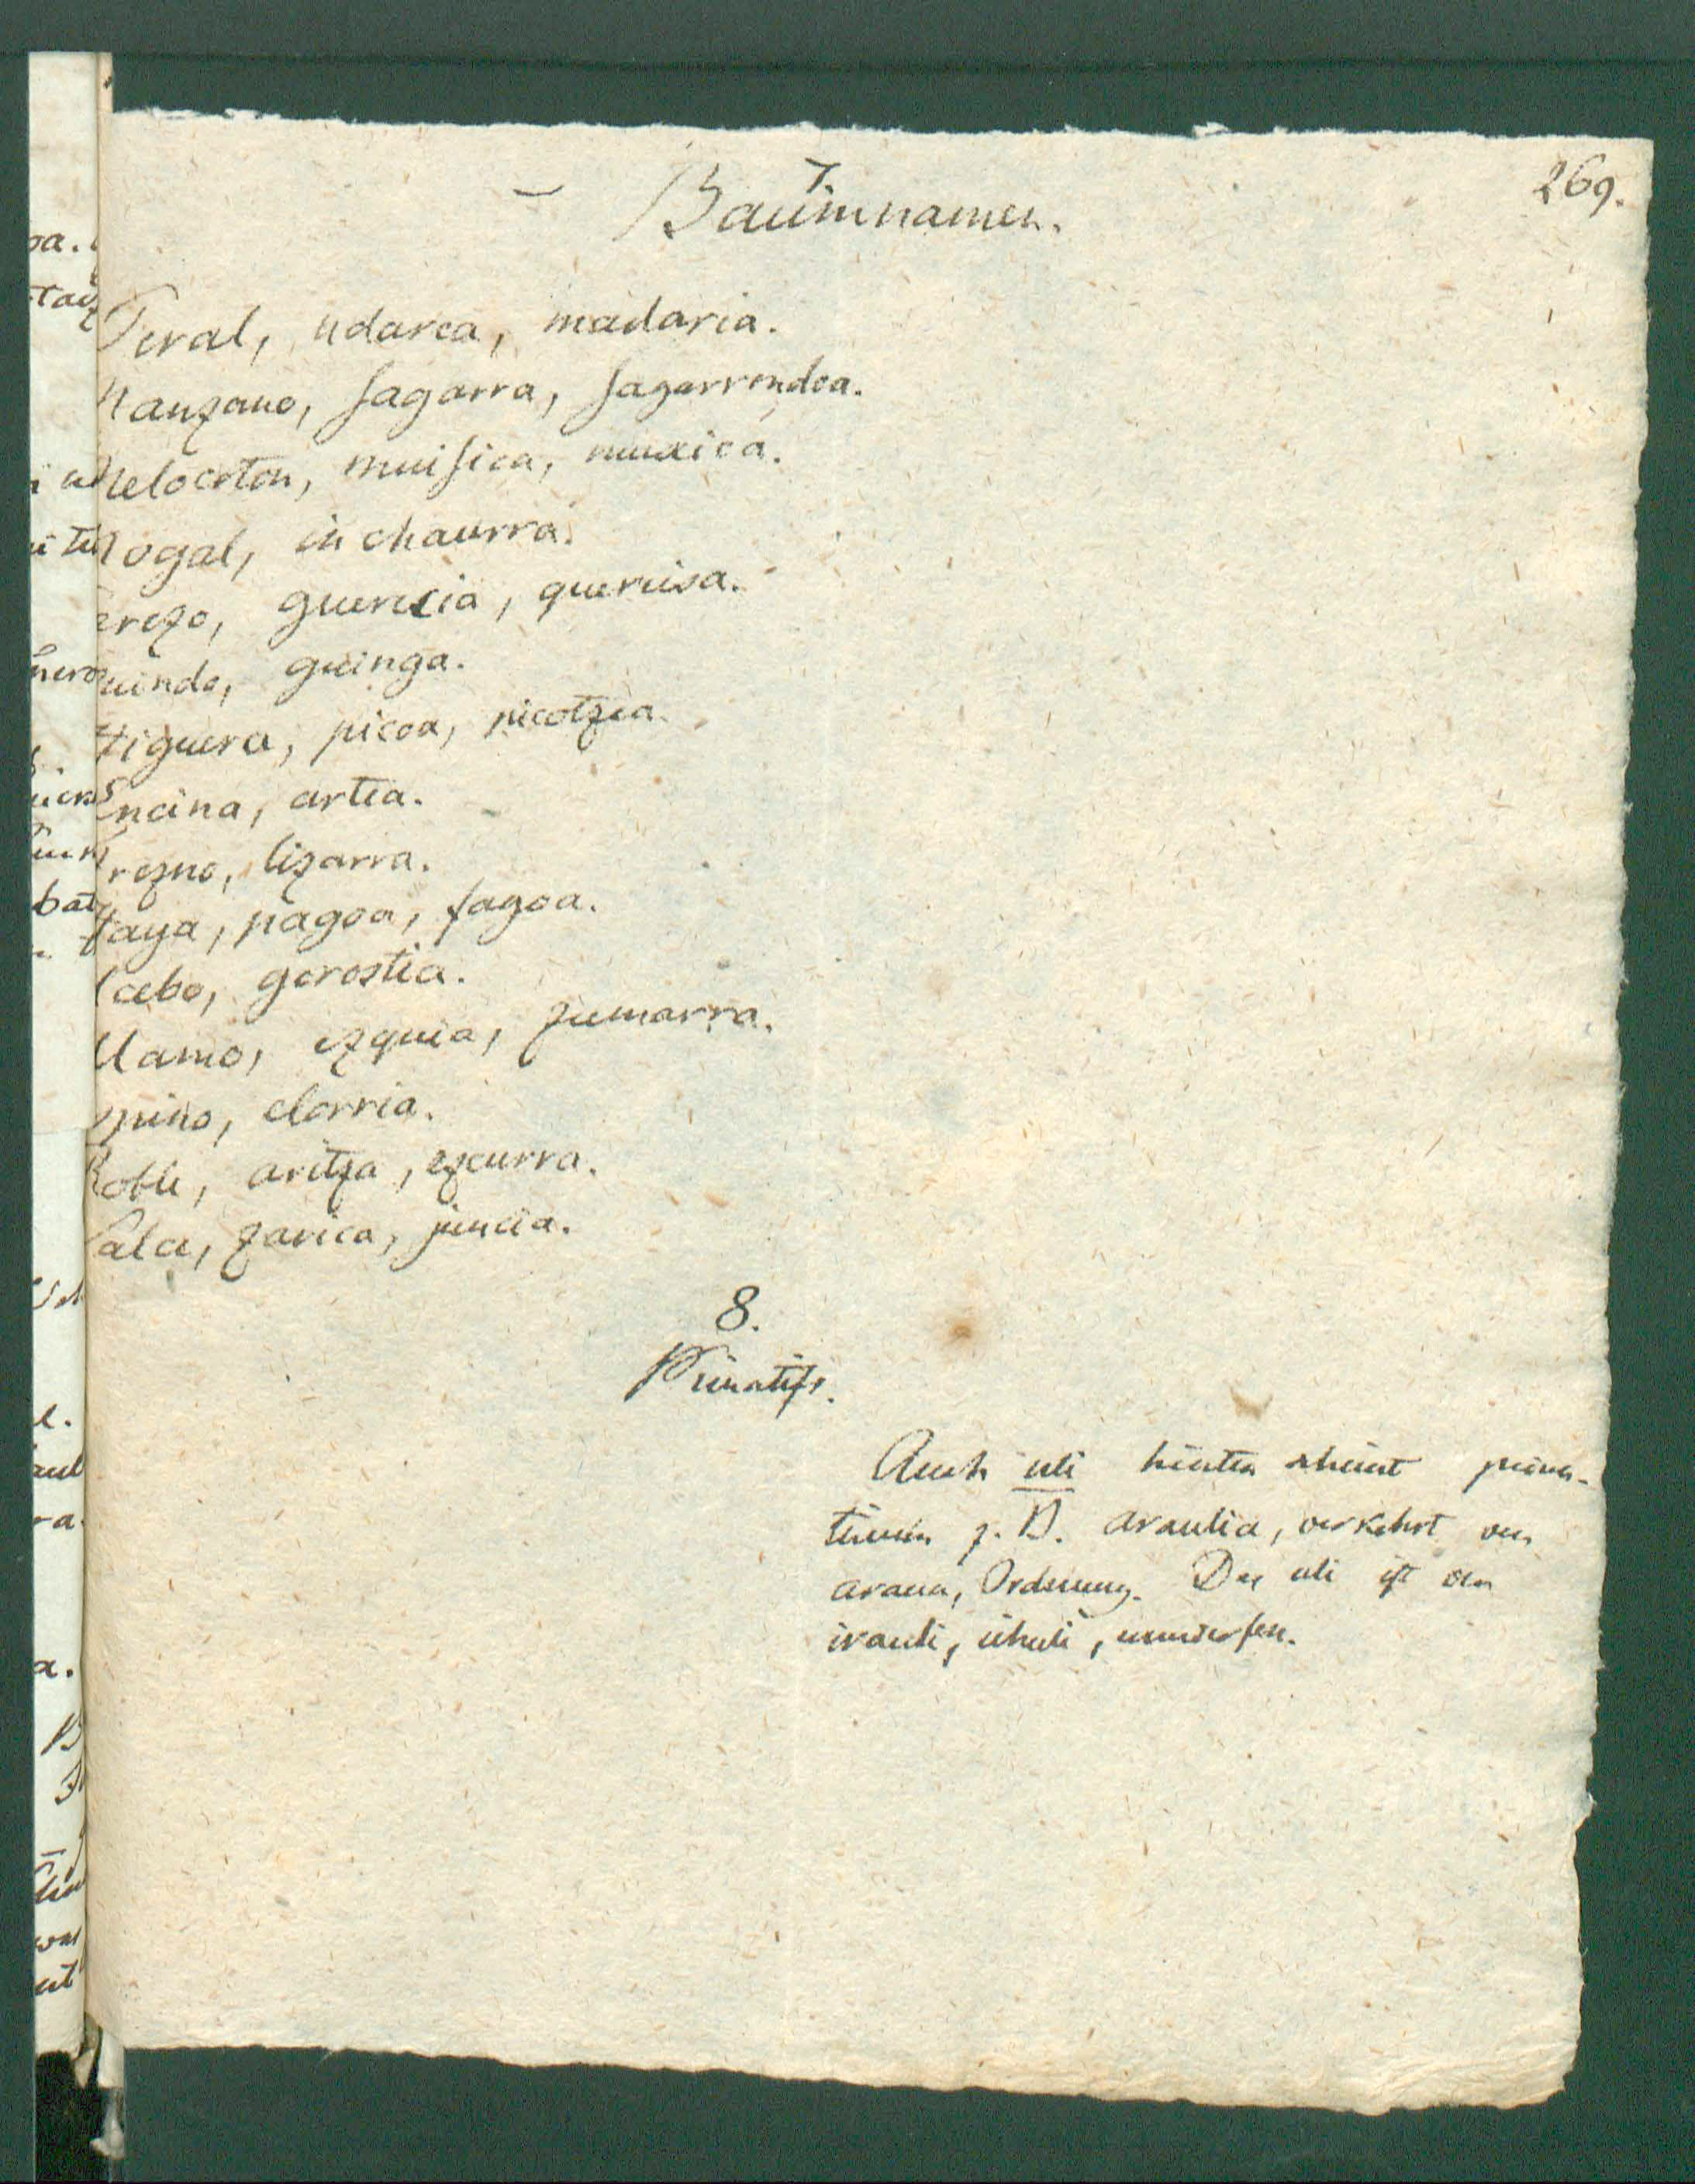 269.
7.
– Baumnamen.
Peral, udarea, madaria.
Manzano, sagarra, sagarrondoa.
Melocoton, muisica, muxica.
Nogal, inchaurra.
erezo, guerecia, queriisa.
uindo, guinga.
Higuera, picoa, picotzea.
Encina, artea.
Frezno, lizarra.
Haya, pagoa, fagoa.
cebo, gorostia.
lamo, ezquia, zumarra.
spino, elorria.
Roble, aritza, ezcurra.
Salce, zarica,
8.
Privatife.
Auch uli hinten scheint priva-
tivum z. B. araulia, verkehrt von
araua, Ordnung. Das uli ist von
irauli, umwerfen.